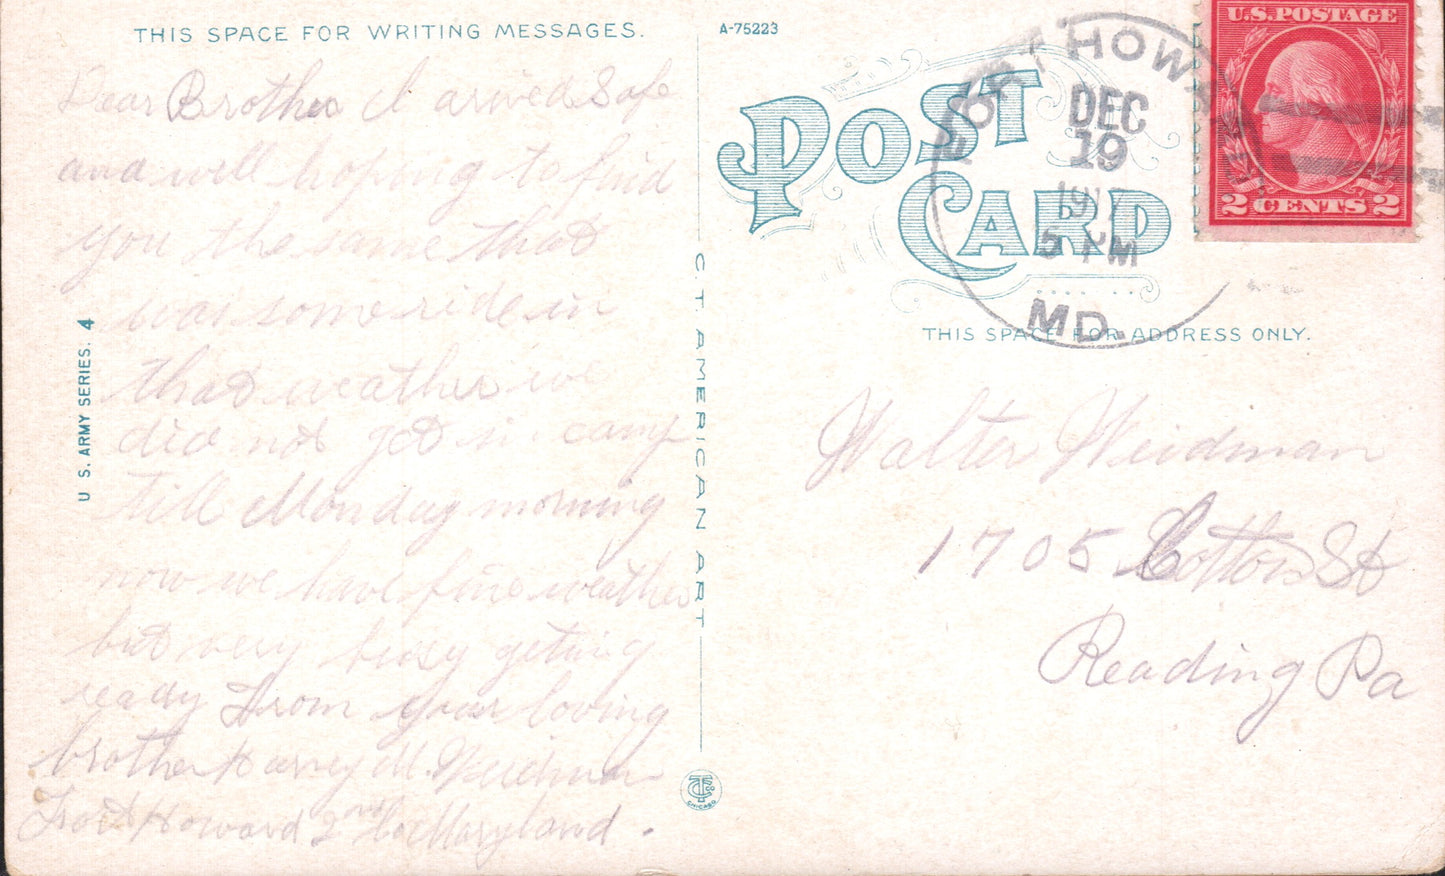 THIS SPACE FOR WRITING MESSAGES.
Dear Brother I arived Safe
and well hoping to find
you the same that
was some ride in
that weather we
did not got in camp
till Monday morning
now we have fine weather
but very busy geting
ready From your loving
brother Harvey M. Weidman
Fort Howard 2nd Co Maryland.
U. S. ARMY SERIES. 4
C. T. AMERICAN ART
CT & Co
CHICAGO
A-75223
POST
CARD
FORT HOWARD
DEC
19
1917
5 PM
MD.
U.S. POSTAGE
2 CENTS 2
THIS SPACE FOR ADDRESS ONLY.
Walter Weidman
1705 Cotton St
Reading Pa